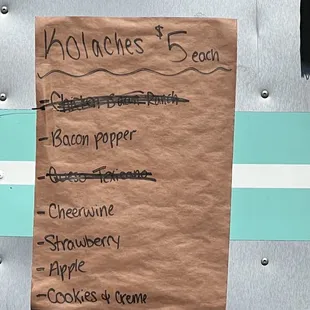 Kolaches $5 each
- Chicken Bacon Ranch
- Bacon popper
- Queso Texicana
- Cheerwine
- Strawberry
- Apple
- Cookies & Creme